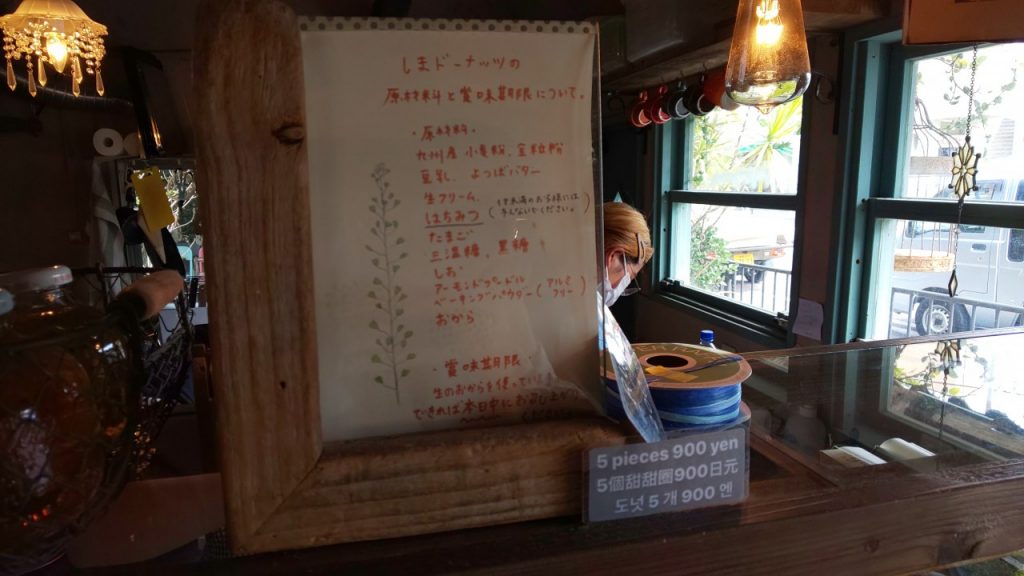 しまドーナッツの
原材料と賞味期限について。
・原材料・
九州産小麦粉、全粒粉
豆乳、よつばバター
生クリーム、
はちみつ
たまご
三温糖、黒糖
しお
アーモンドプードル
ベーキングパウダー(アルミフリー)
おから
・賞味期限・
生のおからを使ってい
できれば本日中にお召し上がり
5 pieces 900 yen
5個甜甜圈900日元
도넛 5 개 900 엔